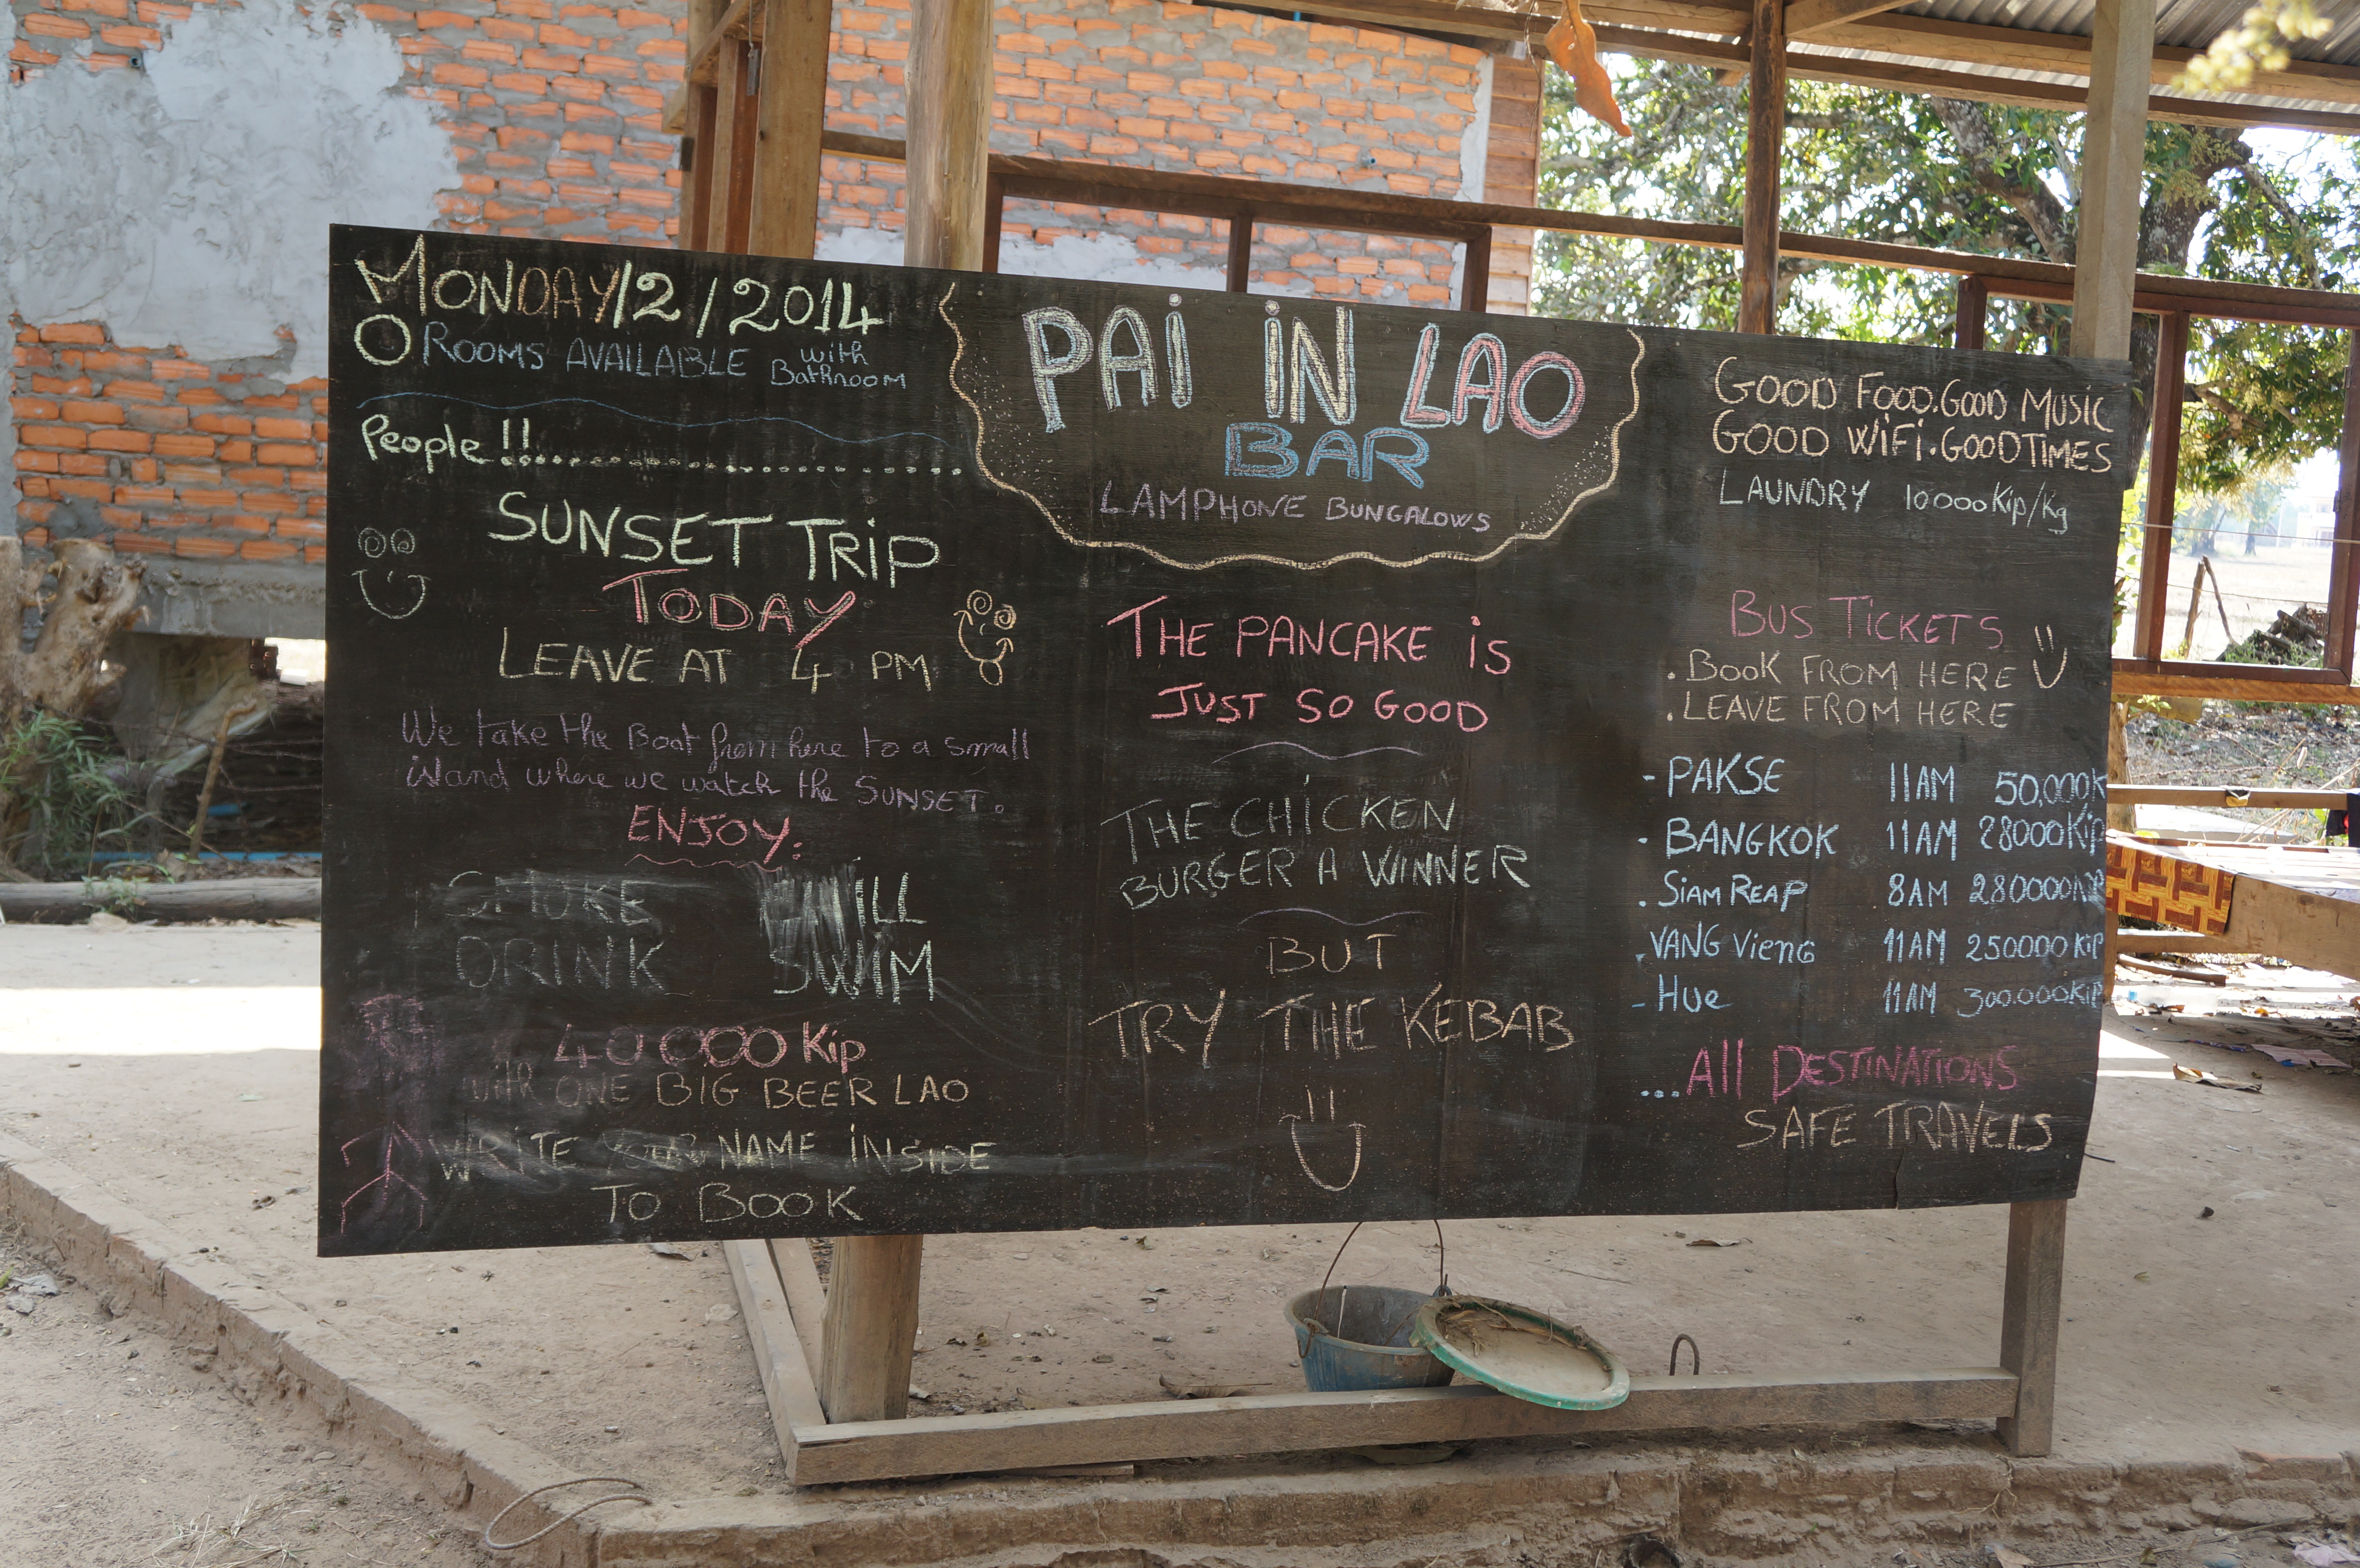 MONDAY/2/2014
O ROOMS AVAILABLE with Bathroom
People!!....................
SUNSET TRiP
TODAY
LEAVE AT 4 PM
We take the Boat from here to a small
island where we watch the SUNSET.
ENJOY:
SMOKE
DRINK SWiM
40000 Kip
with ONE BIG BEER LAO
WRiTE YOUR NAME iNSiDE
TO BOOK
PAi iN LAO
BAR
LAMPHONE BUNGALOWS
THE PANCAKE iS
JUST SO GOOD
THE CHiCKEN
BURGER A WINNER
BUT
TRY THE KEBAB
GOOD FOOD. GOOD MUSiC
GOOD WiFi. GOOD TIMES
LAUNDRY 10000Kip/Kg
BUS TiCKETS
. BOOK FROM HERE
. LEAVE FROM HERE
- PAKSE 11AM 50,000K
- BANGKOK 11AM 28000Kip
. SiAM REAP 8AM 280000KiP
. VANG Vieng 11AM 250000 KiP
- HUe 11AM 300.000KiP
...All DESTiNATiONS
SAFE TRAVELS